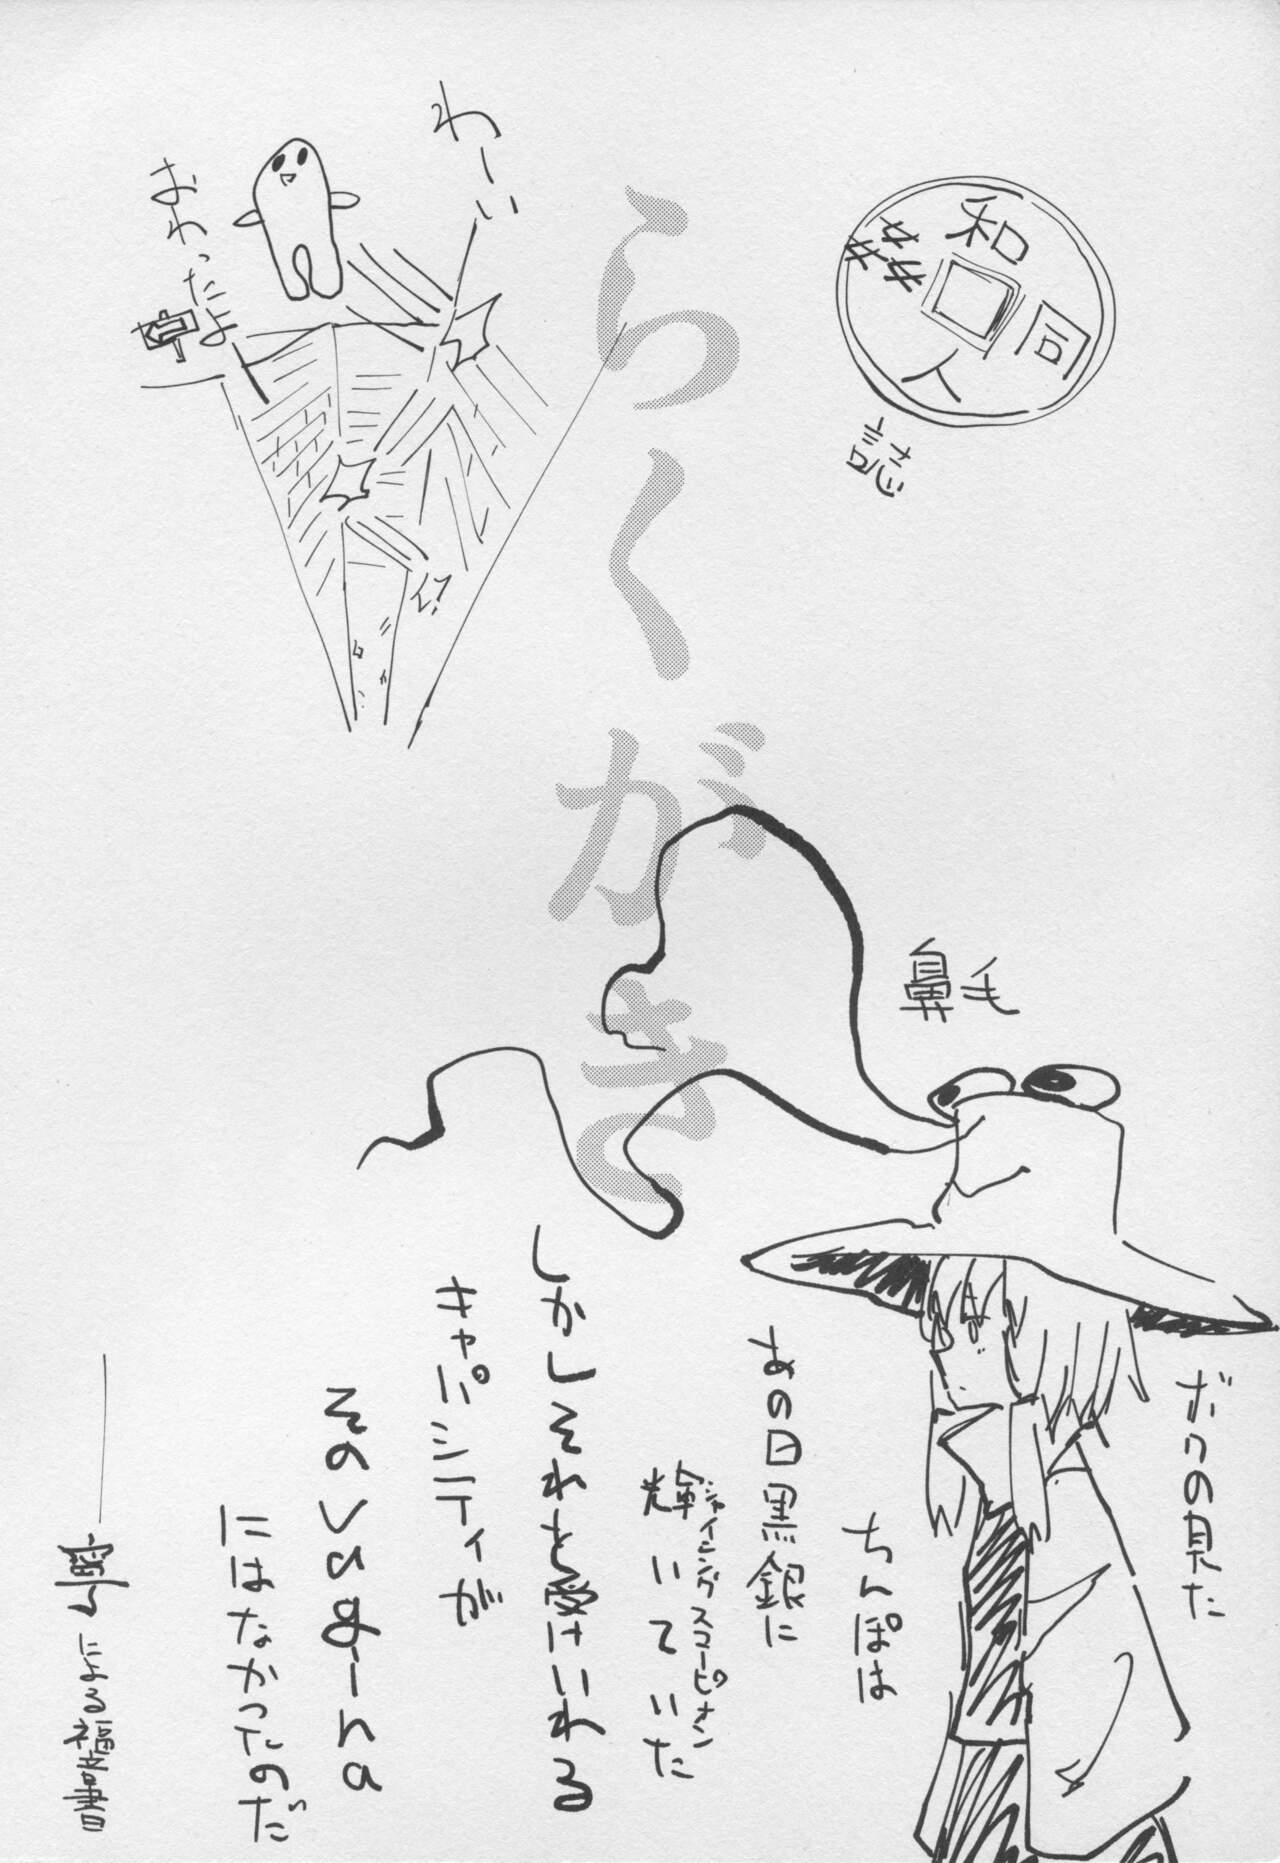 らくがき
和同
人
誌
わーい
おわったよ
鼻毛
ボクの見た
ちんぽは
あの日黒銀に
輝いていた
シャイニングスコーピオン
しかしそれを受けいれる
キャパシティが
には なかったのだ
による福音書